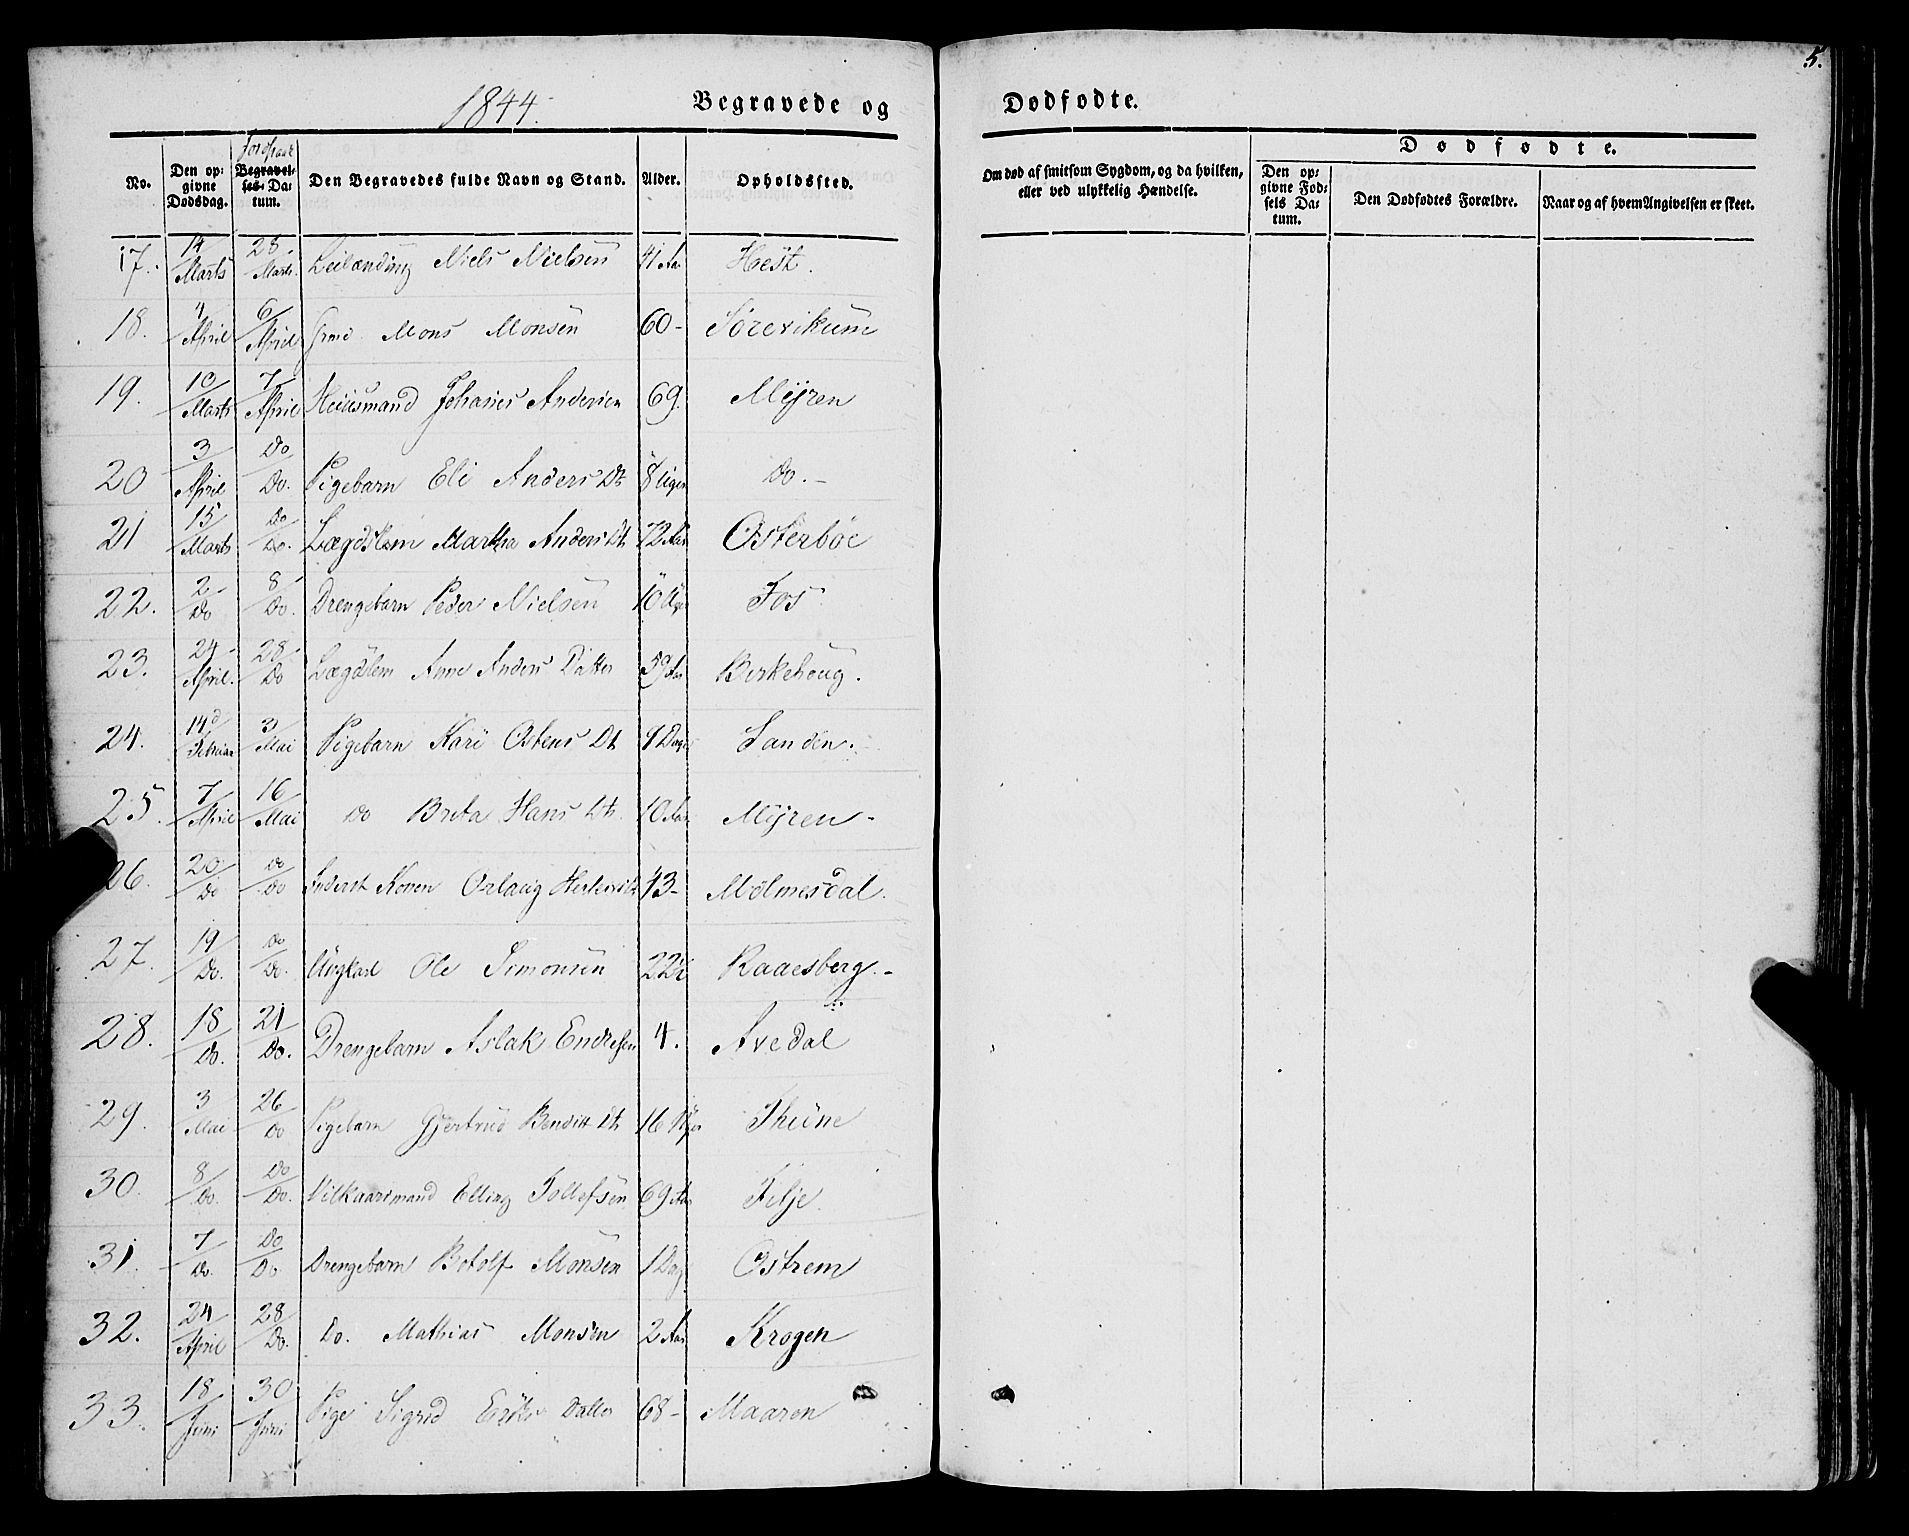 5.
1844. Begravede og Dødfødte.
Jordpaak
No. Den opgivne Dødsdag. Begravelses-Datum. Den Begravedes fulde Navn og Stand. Alder. Opholdssted. Om død af smitsom Sygdom, og da hvilken, eller ved ulykkelig Hændelse. Dødfødte. Den opgivne Fødsels Datum. Den Dødfødtes Forældre. Naar og af hvem Angivelsen er skeet.
17. 14/Marts 25/Marts Leilænding Niels Nielsen 41 Aar Hest.
18. 4/April 6/April Grmd. Mons Monsen 60 - Sørevikum
19. 10/Marts 7/April Huusmand Johanes Andersen 69. Myren
20 3/April Do/Do. Pigebarn Eli Anders Dt 8 Uger Do. -
21 15/Marts Do/Do. Lægdslem Martha Anders Dt 72 Aar Østerbøe
22. 2/Do 8/Do. Drengebarn Peder Nielsen 10 Uger Fos
23. 24/April. 28/Do Lægdslem Anne Anders Datter 59 Aar Birkehoug.
24. 14d/Februar 3/Mai Pigebarn Kari Ostens Dt 9 Dage Sanden.
25. 7/April 16/Mai Do Brita Hans Dtr. 10 Aar Myren -
26. 20/Do Do/Do Inderst Konen Orlaug 43 - Mølmesdal.
27. 19/Do. Do/Do. Ungkarl Ole Simonsen 22 Raaesberg. -
28. 18/Do. 21/Do. Drengebarn Aslak Endresen 4. Avedal
29. 3/Mai 26/Do Pigebarn Gjertrud Bendik Dt 16 Uger Thune
30. 8/Do. Do/Do. Vilkaarsmand Elling Tollefsen 69 Aar Fitje.
31. 7/Do. Do/Do. Drengebarn Botolf Monsen 1 Dag Østrem
32. 24/April 28/Do. Do. Mathias Monsen 2 Aar Krogen
33. 18/Juni 30/Juni Pige Sigrid Eriks Datter 68 - Maaren